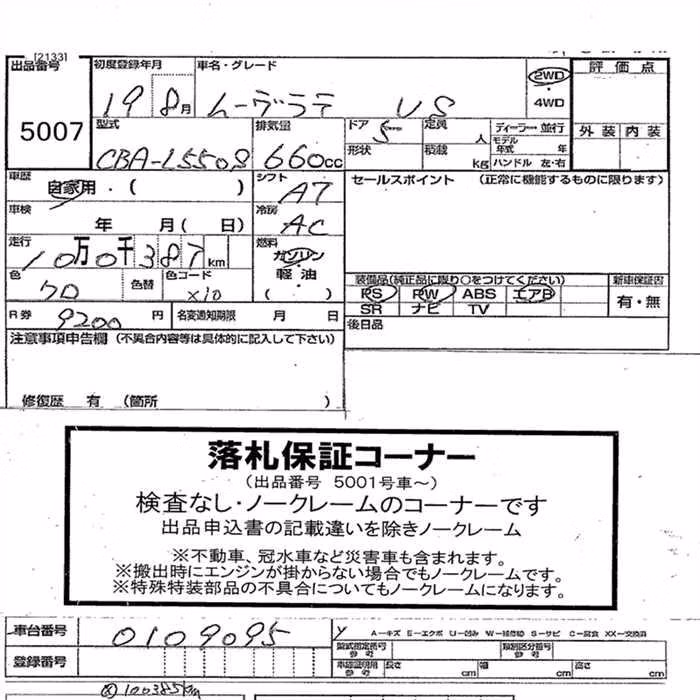 [2133]
出品番号 初度登録年月 車名・グレード 2WD 評価点
19 8月 ムーヴラテ VS 4WD
5007 型式 排気量 ドア 5 定員 人 ディーラー・並行 外装 内装
CBA-L550S 660cc 形状 積載 kg モデル年式 年 ハンドル 左・右
車歴 自家用・( ) シフト AT セールスポイント (正常に機能するものに限ります)
車検 年 月( 日) 冷房 AC
走行 10万0千387km 燃料 ガソリン 軽油 ( ・ )
色 クロ 色替 色コード X10 装備品(純正品に限り○をつけてください) 新車保証書
PS PW ABS エアB 有・無
SR ナビ TV
R券 9200円 名変通知期限 月 日 後日品
注意事項申告欄(不具合内容等は具体的に記入して下さい)
修復歴 有 (箇所 )
落札保証コーナー
(出品番号 5001号車〜)
検査なし・ノークレームのコーナーです
出品申込書の記載違いを除きノークレーム
※不動車、冠水車など災害車も含まれます。
※搬出時にエンジンが掛からない場合でもノークレームです。
※特殊特装部品の不具合についてもノークレームになります。
車台番号 0109095 A−キズ E−エクボ U−凹み W−補修跡 S−サビ C−腐食 XX−交換済
登録番号 型式指定番号 参考 類別区分番号 参考
車検証明用 参考 長さ cm 幅 cm 高さ cm
100385km